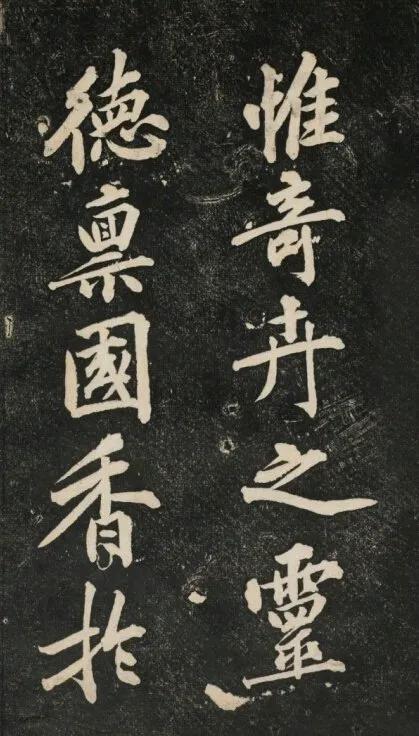 惟奇卉之靈
德禀國香扵